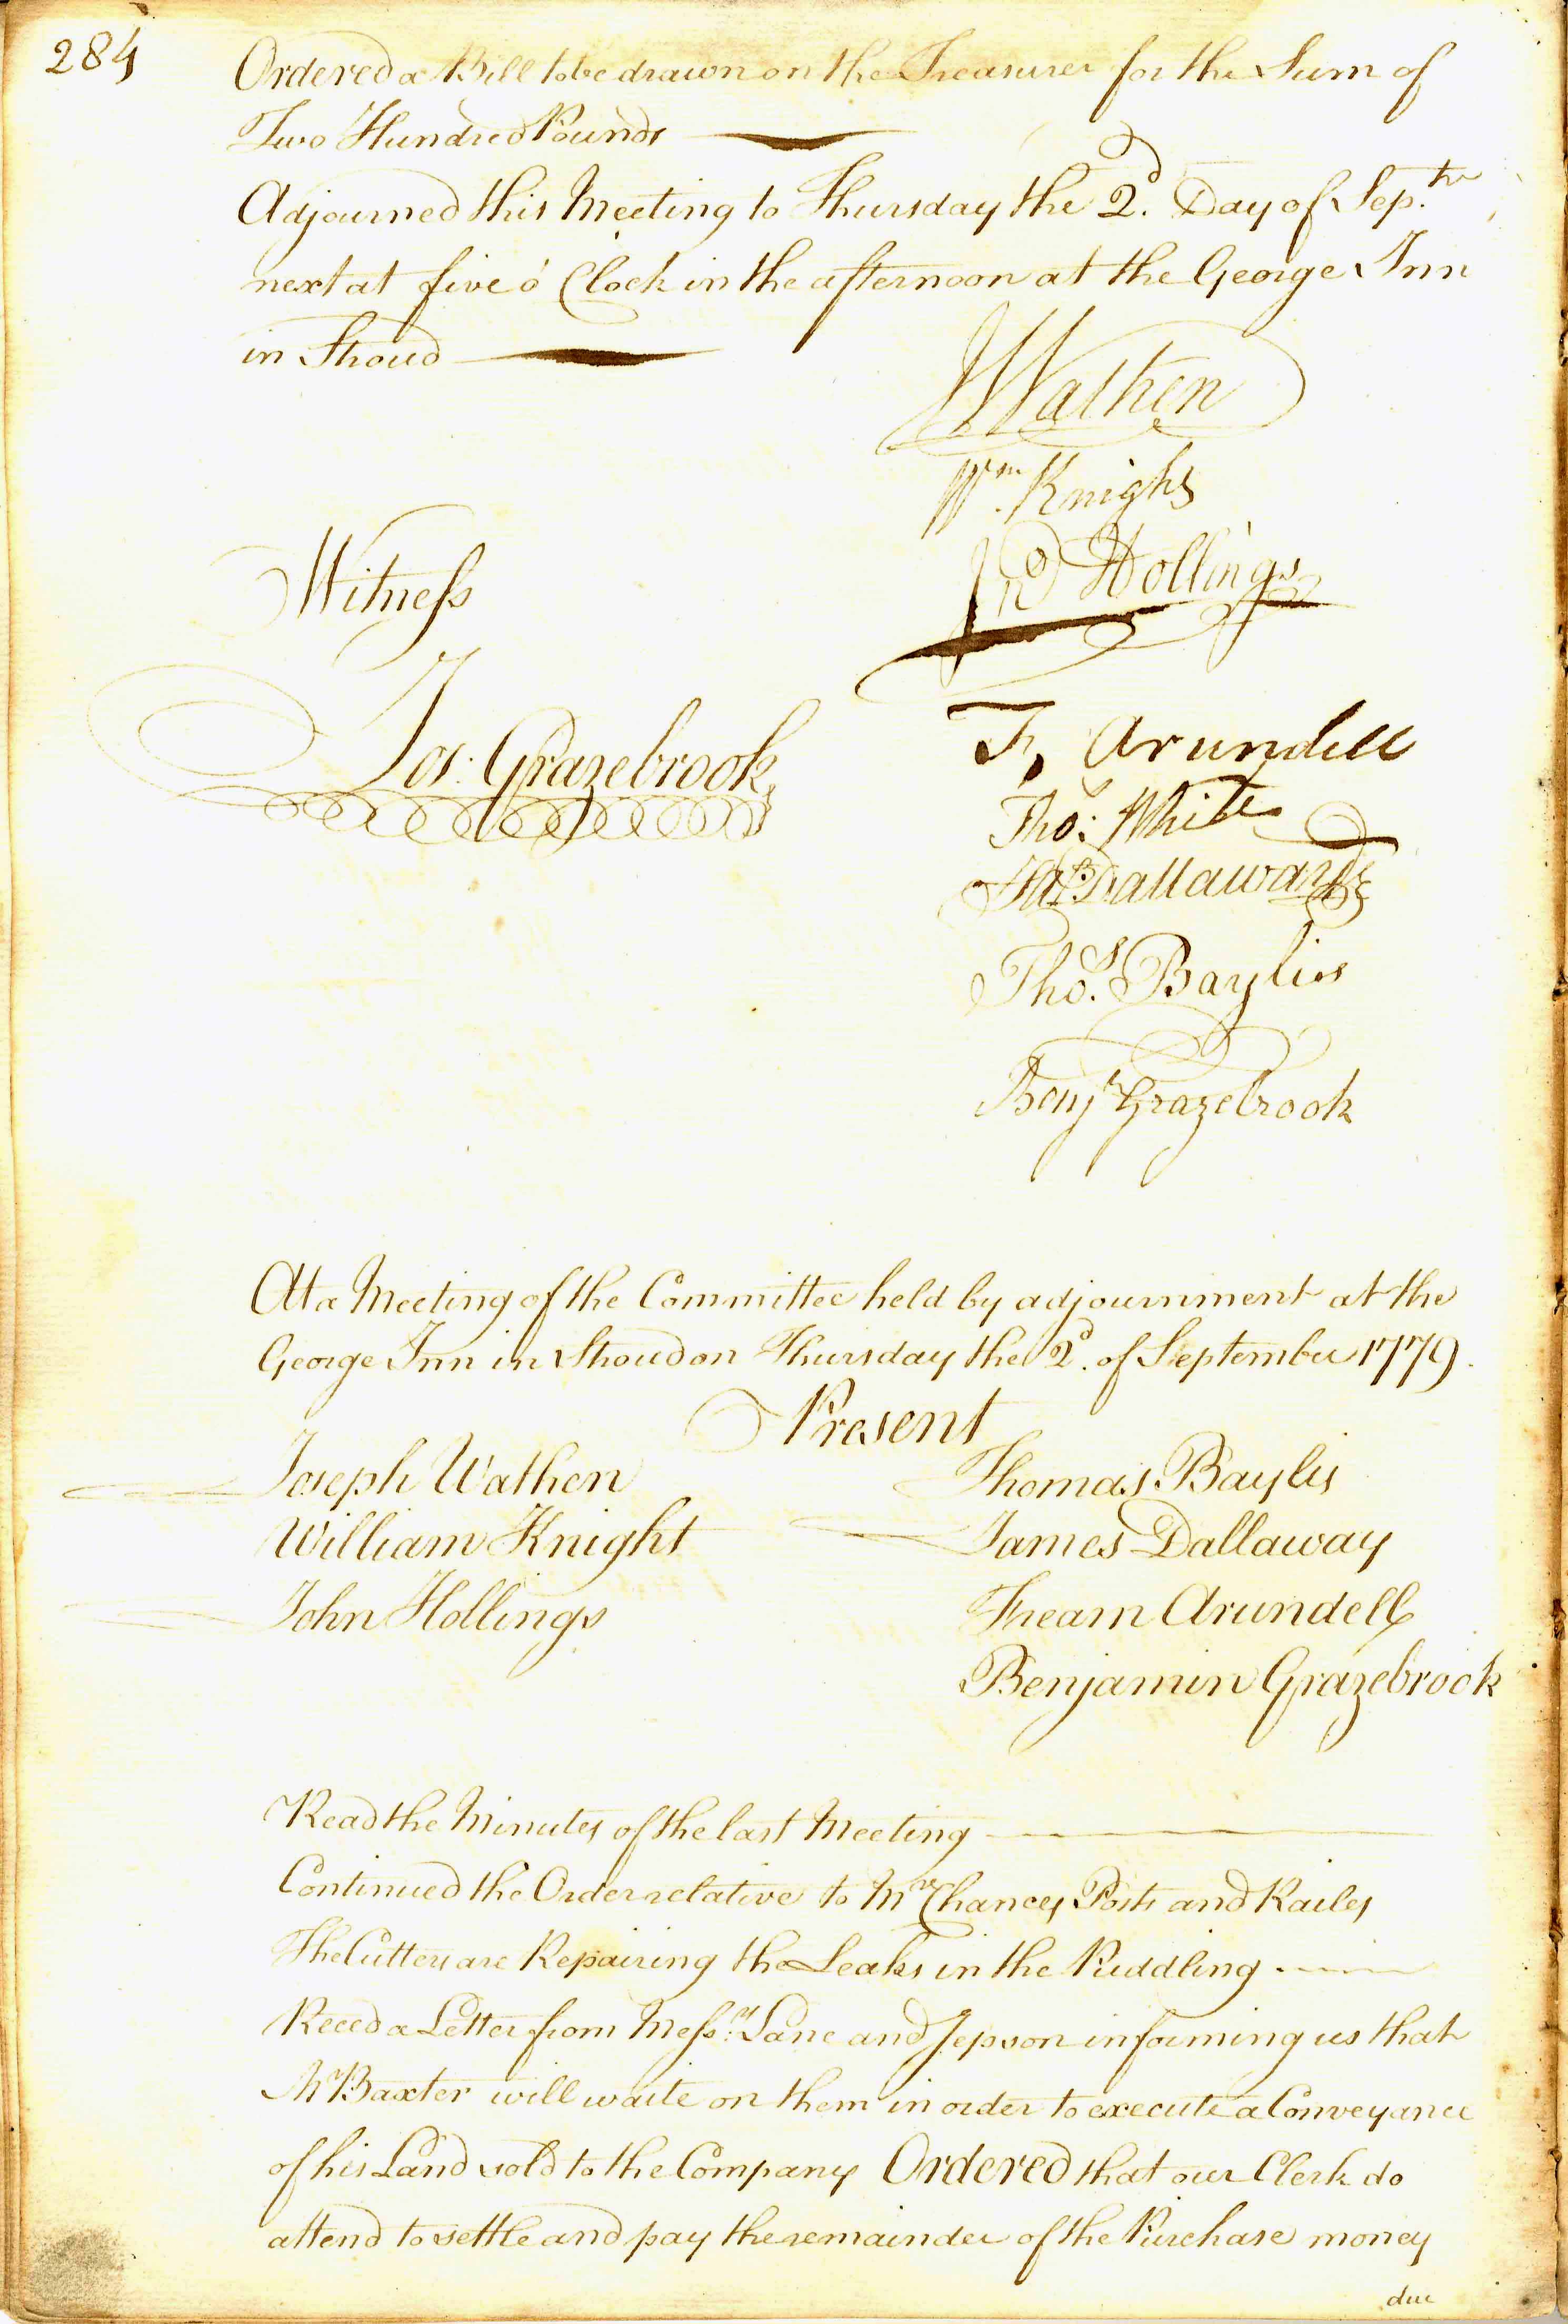 284
Ordered a Bill to be drawn on the Treasurer for the Sum of
Two Hundred Pounds
Adjourned this Meeting to Thursday the 2.d Day of Sep.tr
next at five o' Clock in the afternoon at the George Inn
in Stroud
JWathen
Wm. Knight
Jno Hollings
Witness
Jos: Grazebrook
F, Arundell
Tho:s White
Jas. Dallaway
Thos. Baylis
Benjn Grazebrook
At a Meeting of the Committee held by adjournment at the
George Inn in Stroud on Thursday the 2d. of September 1779.
Present
Joseph Wathen
Thomas Baylis
William Knight
James Dallaway
John Hollings
Fream Arundell
Benjamin Grazebrook
Read the Minutes of the last Meeting
Continued the Order relative to Mr Chances Posts and Railes
The Cutters are Repairing the Leaks in the Puddling
Reced a Letter from Messrs. Lane and Jepson informing us that
Mr Baxter will waite on them in order to execute a Conveyance
of his Land sold to the Company Ordered that our Clerk do
attend to settle and pay the remainder of the Purchase money
due